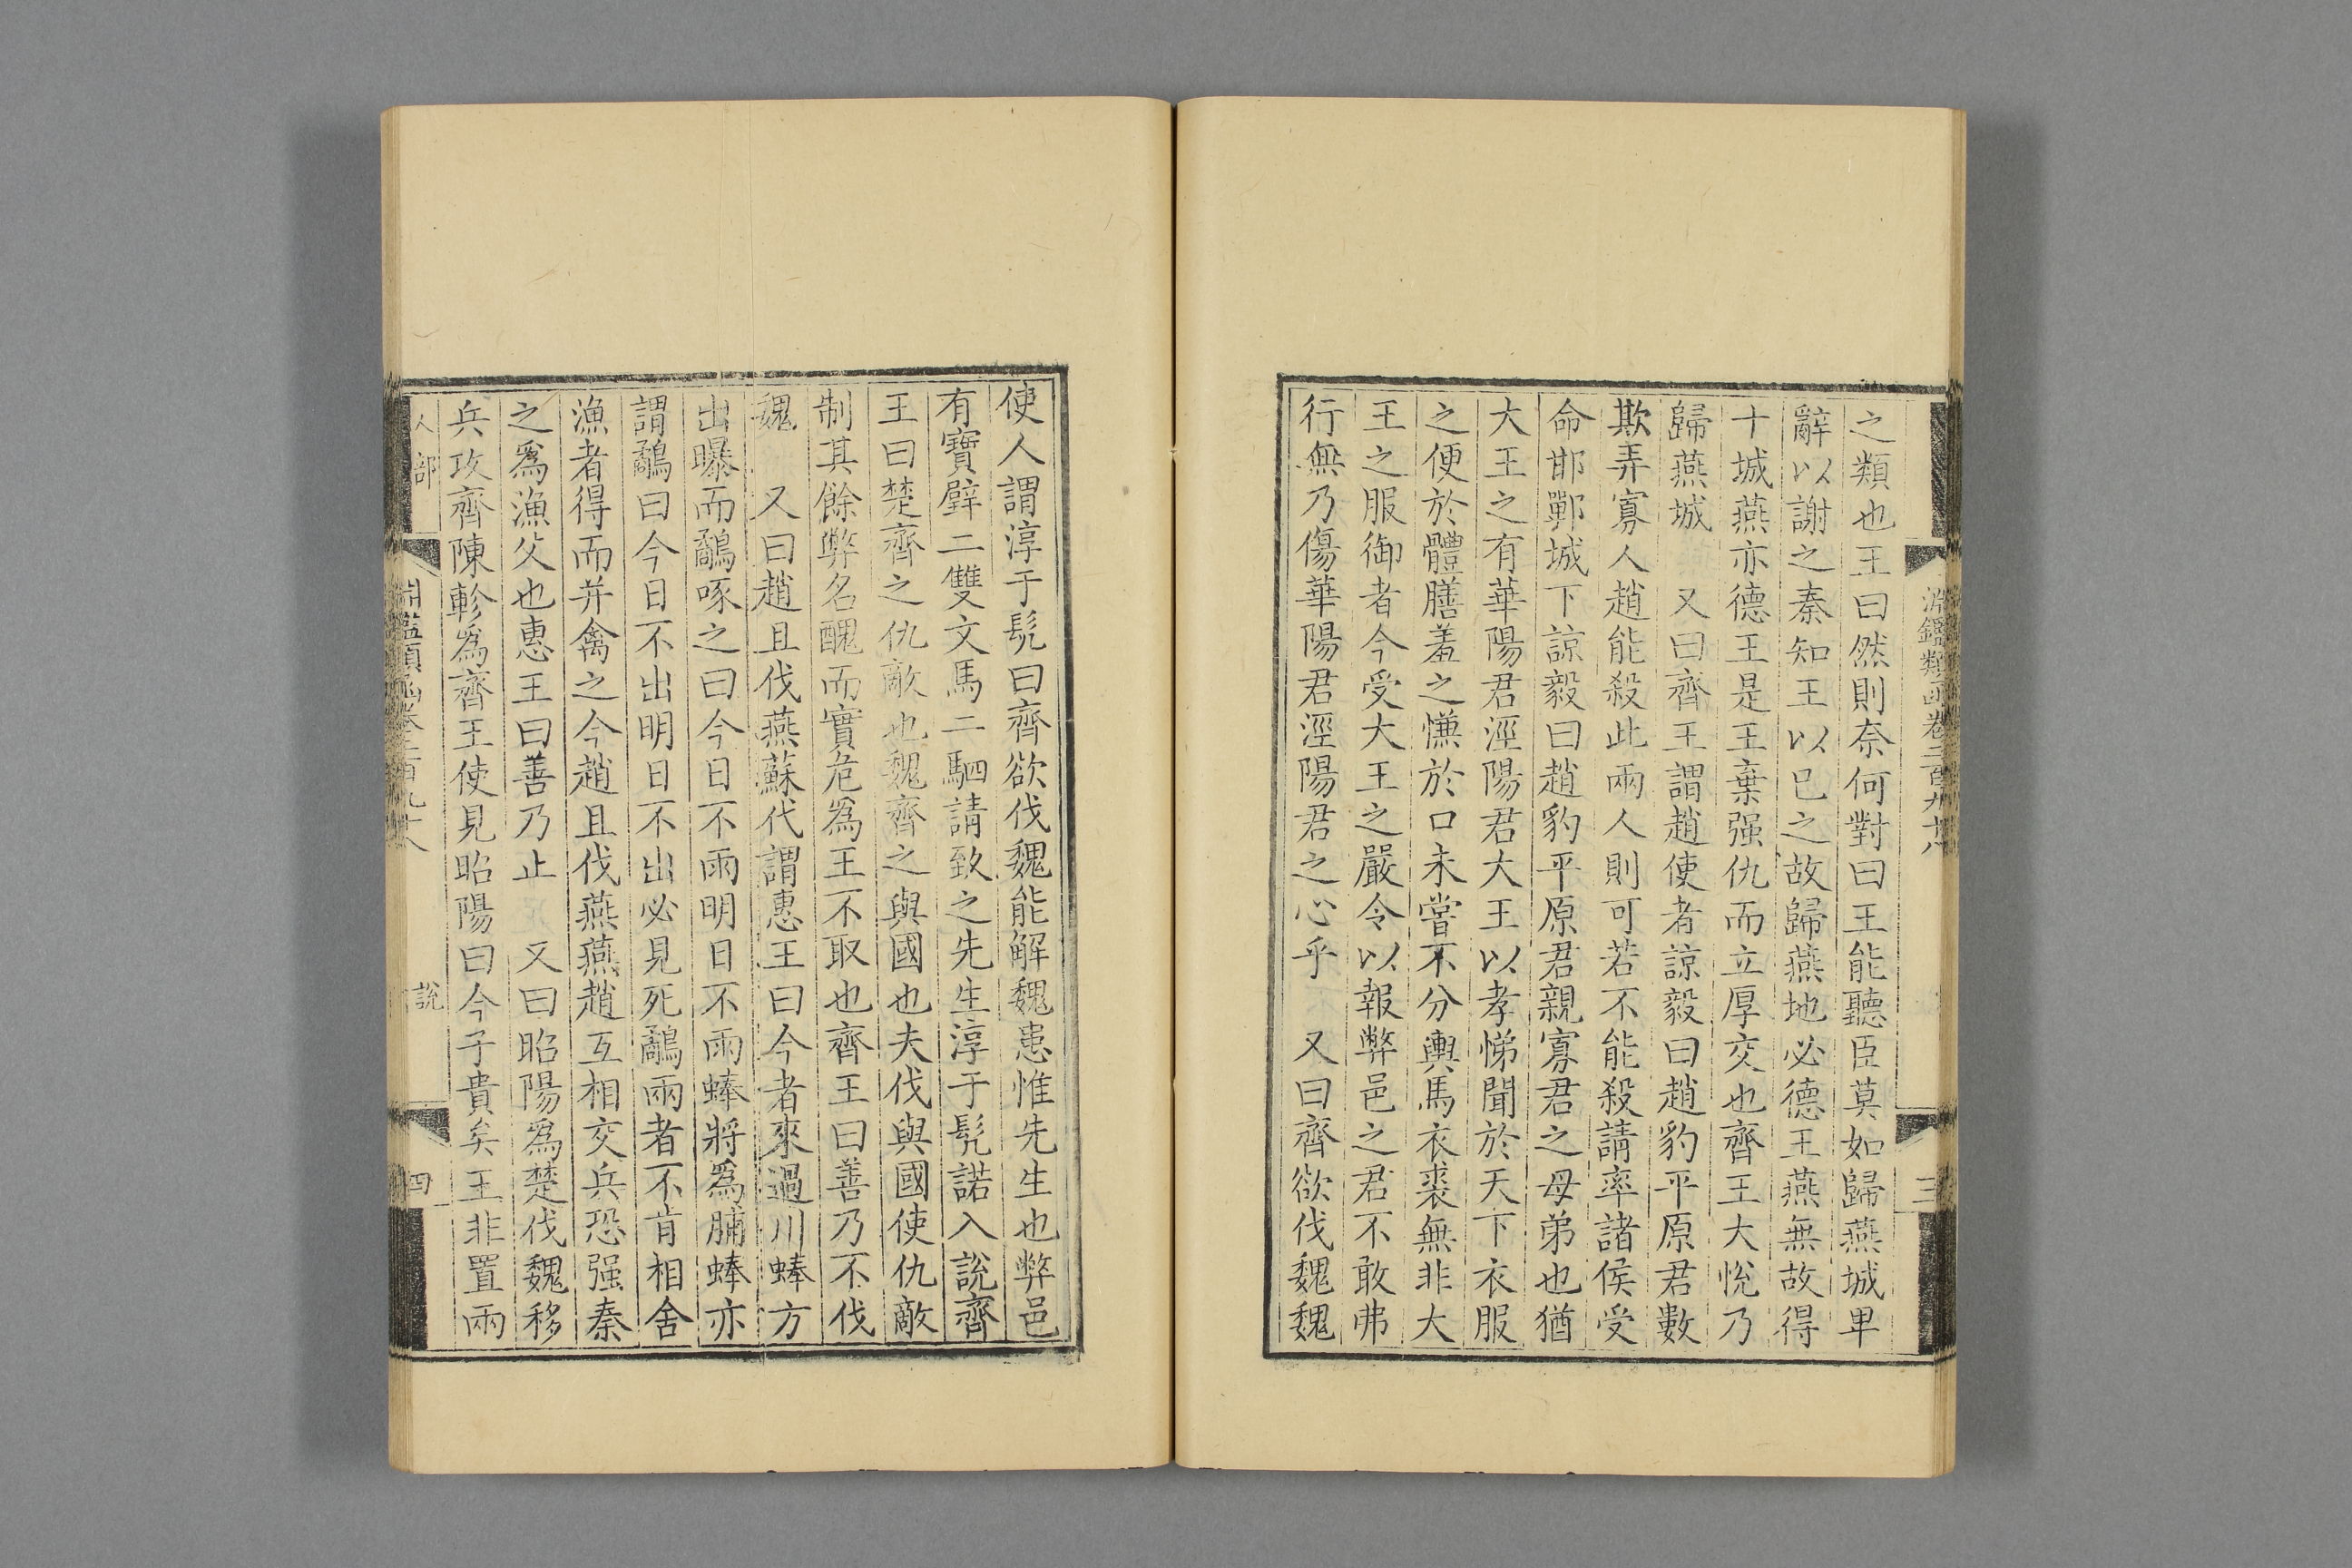 淵鑑類函卷二百九十八
三
之類也王曰然則奈何對曰王能聽臣莫如歸燕城卑
辭以謝之秦知王以巳之故歸燕地必德王燕無故得
十城燕亦德王是王棄强仇而立厚交也齊王大悅乃
歸燕城　又曰齊王謂趙使者諒毅曰趙豹平原君數
欺弄寡人趙能殺此兩人則可若不能殺請率諸侯受
命邯鄲城下諒毅曰趙豹平原君親寡君之母弟也猶
大王之有華陽君涇陽君大王以孝悌聞於天下衣服
之便於體膳羞之慊於口未嘗不分輿馬衣裘無非大
王之服御者今受大王之嚴令以報弊邑之君不敢弗
行無乃傷華陽君涇陽君之心乎　又曰齊欲伐魏魏
使人謂淳于髡曰齊欲伐魏能解魏患惟先生也弊邑
有寶璧二雙文馬二駟請致之先生淳于髡諾入說齊
王曰楚齊之仇敵也魏齊之與國也夫伐與國使仇敵
制其餘弊名醜而實危爲王不取也齊王曰善乃不伐
魏　又曰趙且伐燕蘇代謂惠王曰今者來過川蜯方
出曝而鷸啄之曰今日不雨明日不雨蜯將爲脯蜯亦
謂鷸曰今日不出明日不出必見死鷸兩者不肯相舍
漁者得而并禽之今趙且伐燕燕趙互相交兵恐强秦
之爲漁父也惠王曰善乃止　又曰昭陽爲楚伐魏移
兵攻齊陳軫爲齊王使見昭陽曰今子貴矣王非置兩
人部
淵鑑類函卷二百九十八
說
四